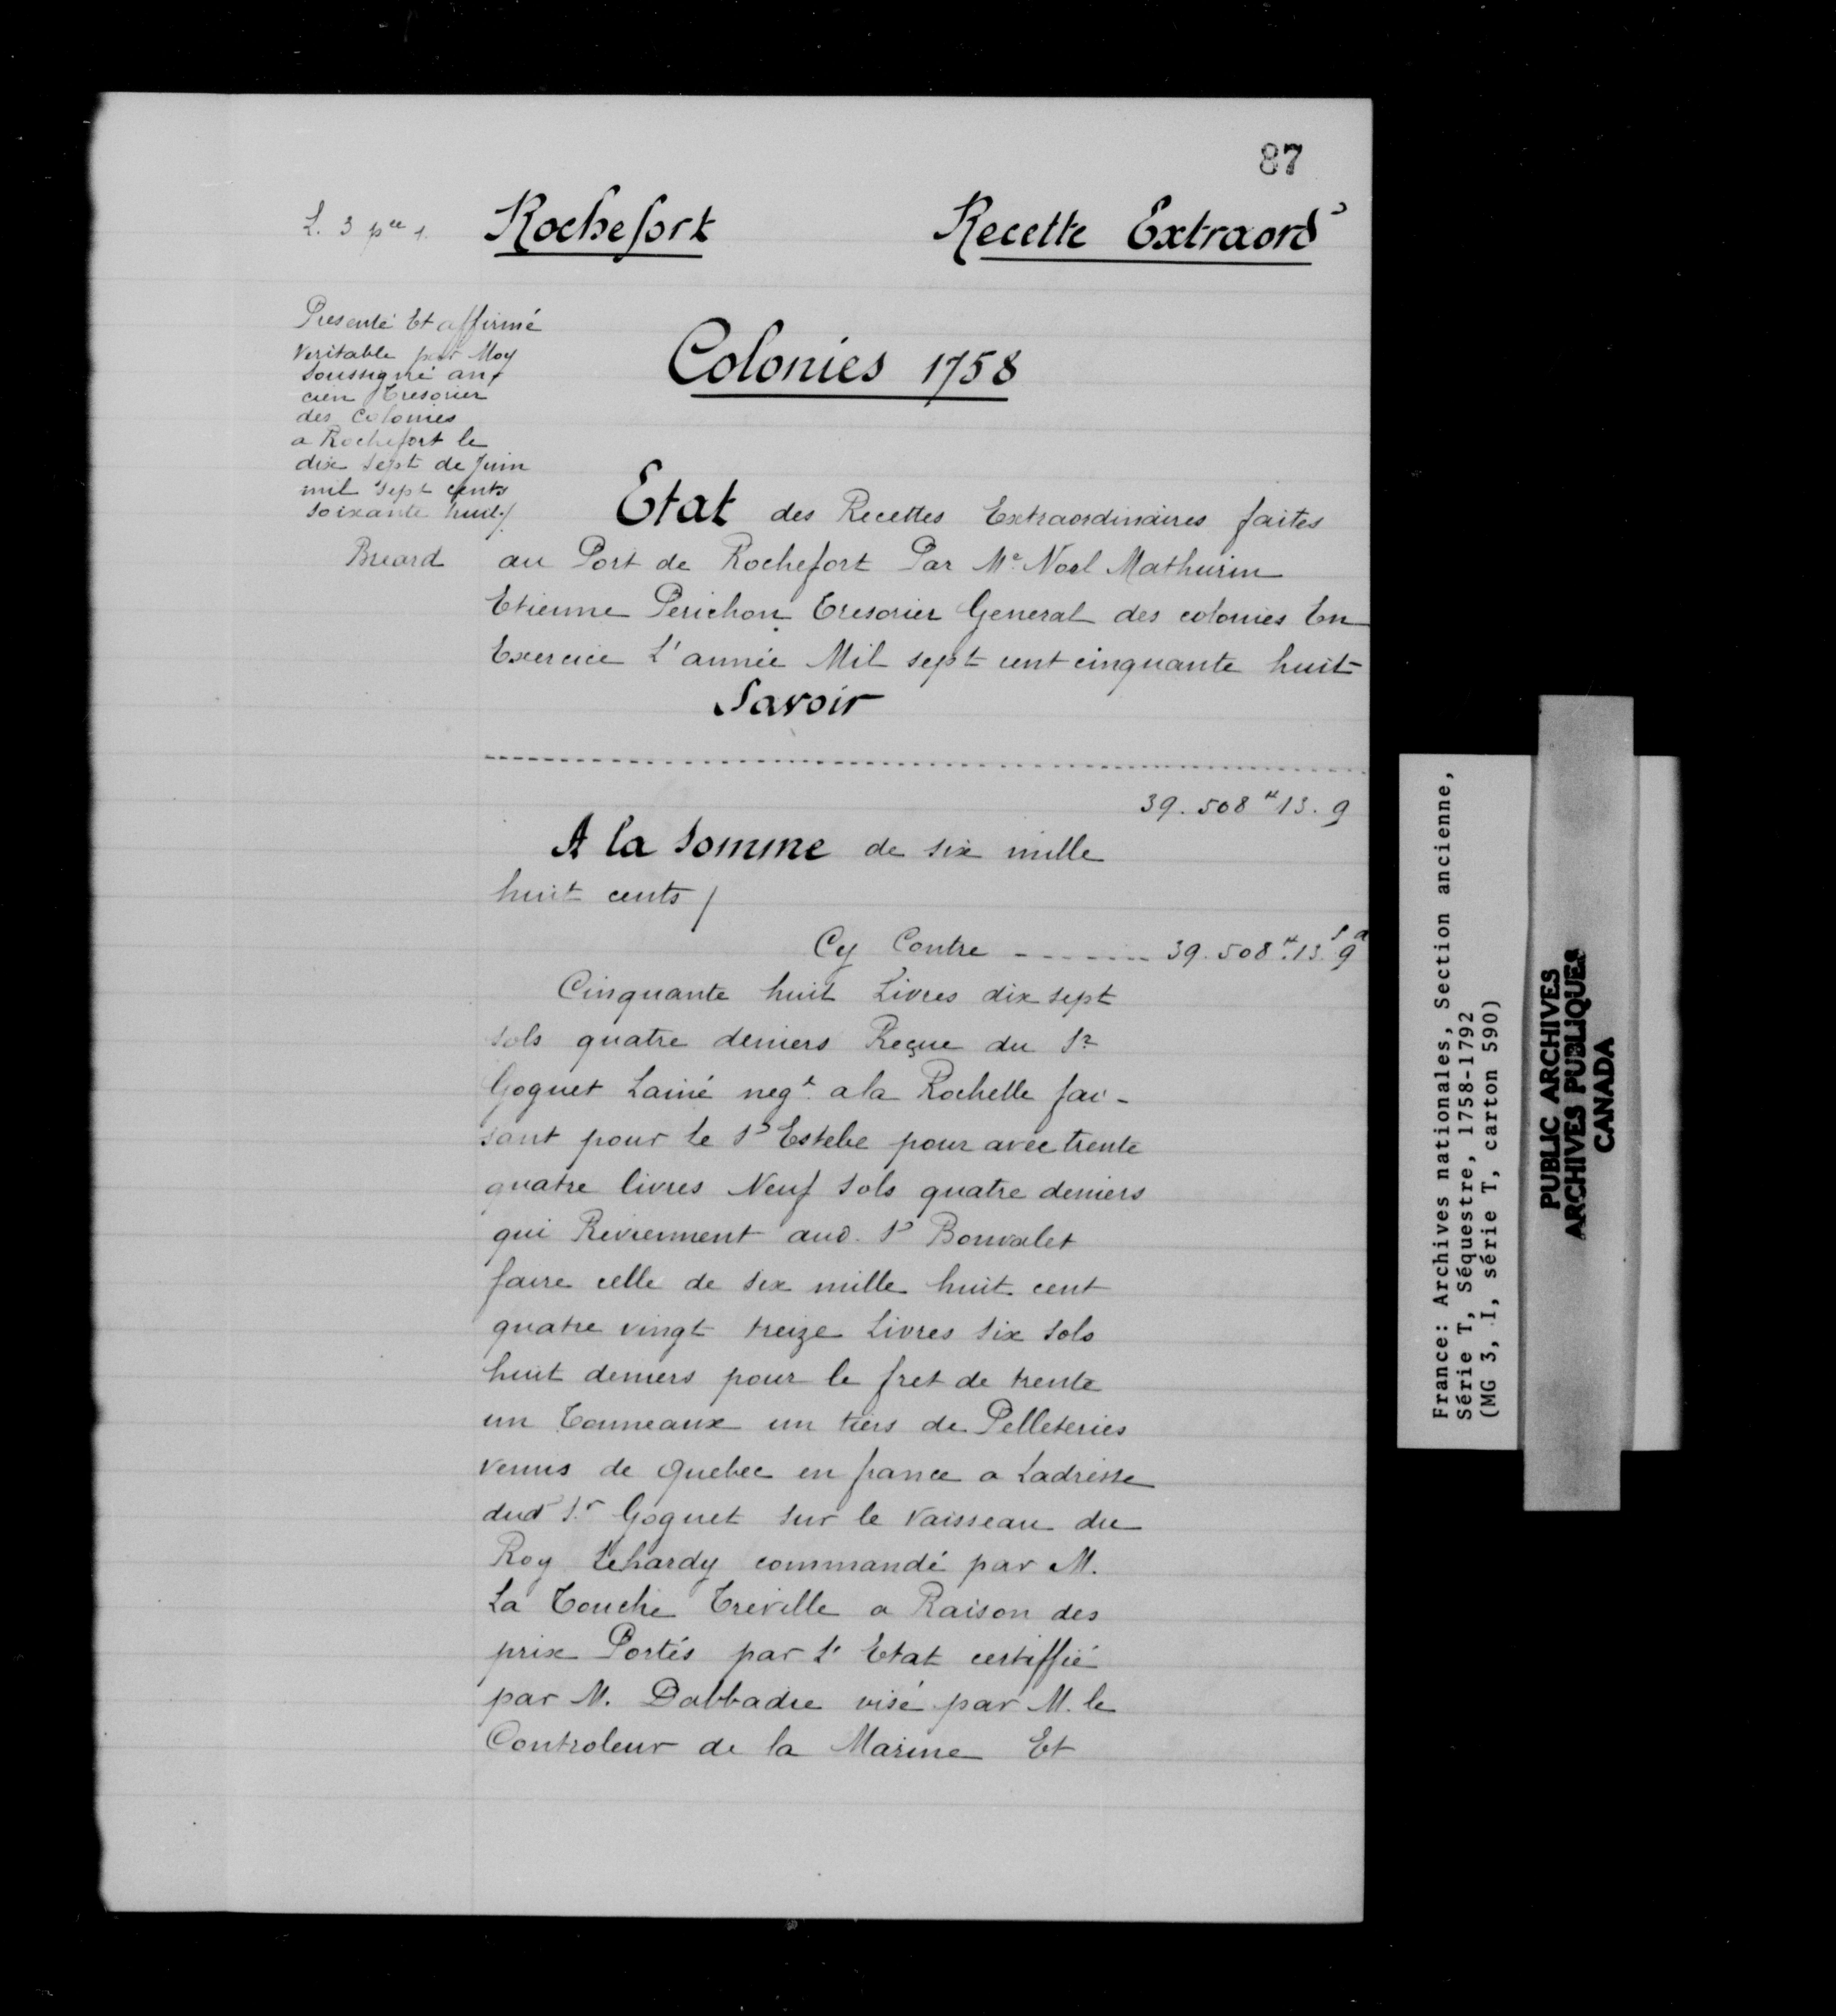 87
L. 3 pce 1. Rochefort Recette Extraord
Presenté Et affirmé
veritable par Moy
soussigné an
cien Tresorier
des Colonies
a Rochefort le
dix sept de Juin
mil sept cents
soixante huit /.
Breard
Colonies 1758
Etat des Recettes Extraordinaires faites
au Port de Rochefort Par Me Noel Mathurin
Etienne Perichon Tresorier General des colonies En
Exercice L'année Mil sept cent cinquante huit
Savoir
39.508 ₶ 13. 9
A la somme de six mille
huit cents /
Cy Contre ------- 39.508 ₶ 13 s 9 d
Cinquante huit Livres dix sept
sols quatre deniers Reçue du Sr
Goguet Lainé negt a la Rochelle fai-
sant pour le Sr Estebe pour avec trente
quatre livres Neuf sols quatre deniers
qui Reviennent aud. Sr Bonvalet
faire celle de six mille huit cent
quatre vingt treize Livres six sols
huit deniers pour le fret de trente
un Tonneaux un tiers de Pelleteries
venus de Quebec en france a Ladresse
dud Sr Goguet sur le vaisseau du
Roy Lehardy commandé par M.
La Touche Treville a Raison des
prix Portés par L'Etat certiffié
par M. Dabbadie visé par M. le
Controleur de la Marine Et
France: Archives nationales, Section ancienne,
Série T, Séquestre, 1758-1792
(MG 3, I, série T, carton 590)
PUBLIC ARCHIVES
ARCHIVES PUBLIQUES
CANADA